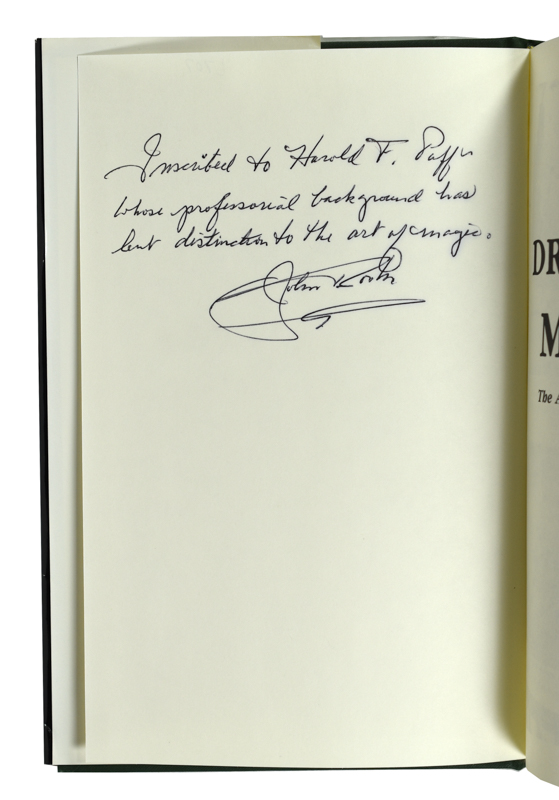 Inscribed to Harold F.
whose professorial background has
lent distinction to the art of magic.
John Booth
DR
M
The A